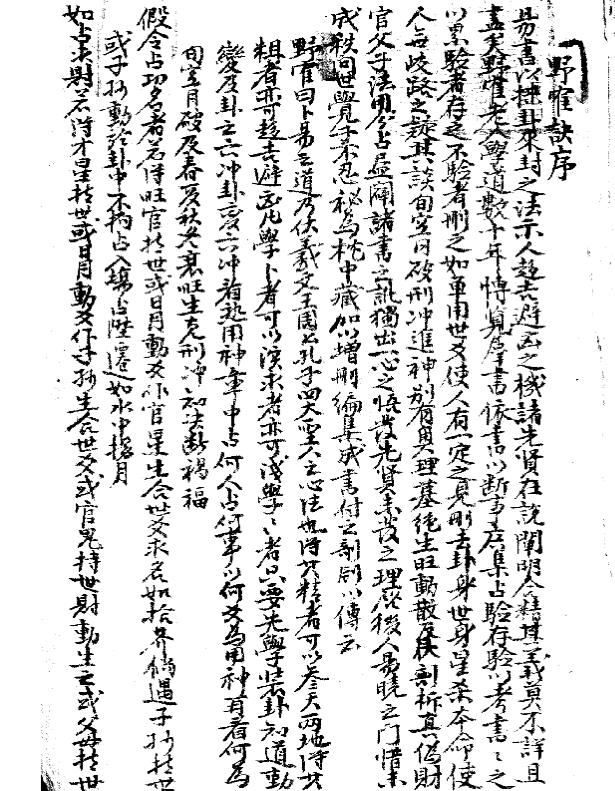 野隺訣序
易書以揲卦爻封之法示人趨吉避凶之機諸先賢在說闡明今精其義莫不詳且
盡矣野隺老人學道數十年愽覓羣書依書以斷事應集占驗存驗以考書〻之
以累驗者存之不驗者刪之如單用世爻使人有一定之見刪去卦身世身星杀本命使
人無歧路之疑其談旬空月破刑冲進神別有奧理墓絕生旺動散反伏剖柝真偽財
官父子法用分占盡闢諸書之訛獨出一心之悟發先賢未發之理啟後人易曉之门惜未
成秩问世覺子不忍秘為枕中藏加以增刪編集成書付之剞劂以傳云
野隺曰卜易之道乃伏羲文王周公孔子四大聖人之心法也得其精者可以叅天兩地得其
粗者亦趨吉避凶凡學卜者可以深求者亦可浅學〻者只要先學裝卦知道動
變及卦之六冲卦變六冲看熟用神章中占何人占何事以何爻為用神再看何為
旬空月破及春夏秋冬衰旺生克刑冲知決断禍福
假令占功名者若得旺官持世或日月動爻作官星生合世爻求名如拾芥倘遇子孙持世
或子孙動於卦中不拘占入塲占陞遷如水中撈月
如占求財若得才星持世或日月動爻作子孙生合世爻或官鬼持世財動生之或父母持世